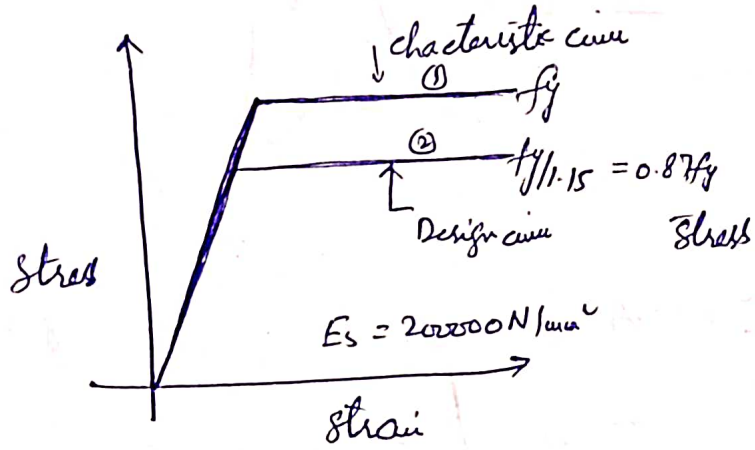 chacteristic curve
①
fy
②
fy/1.15 = 0.87fy
Design curve
Stress
Stress
Es = 200000 N/mm²
Strain